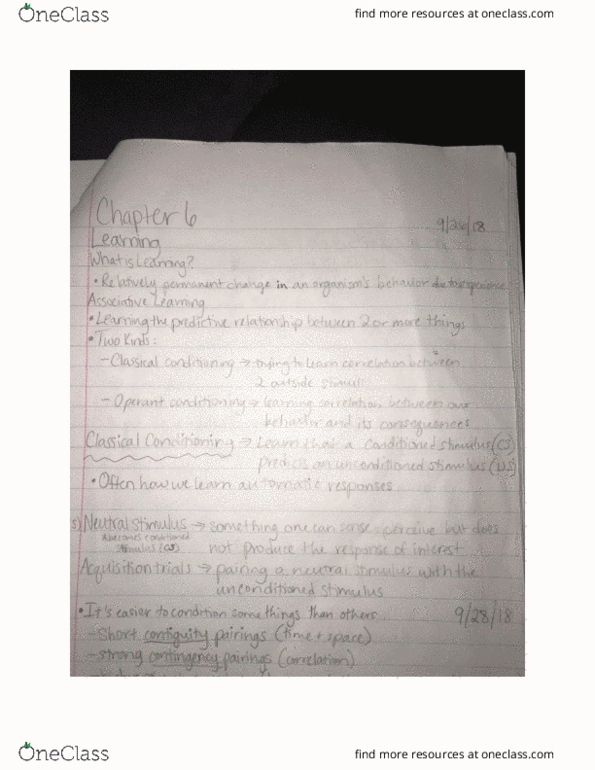 OneClass
find more resources at oneclass.com
Chapter 6
9/26/18
Learning
What is Learning?
• Relatively permanent change in an organism's behavior due to experience
Associative Learning
• Learning the predictive relationship between 2 or more things
• Two Kinds:
– Classical conditioning → trying to learn correlation between
2 outside stimuli
– Operant conditioning → learning correlation between our
behavior and its consequences
Classical Conditioning → Learn that a conditioned stimulus (CS)
predicts an unconditioned stimulus (US)
• Often how we learn automatic responses
Neutral Stimulus → something one can sense + perceive but does
becomes conditioned
stimulus (CS)
not produce the response of interest
Acquisition trials → pairing a neutral stimulus with the
unconditioned stimulus
• It's easier to condition some things than others
9/28/18
– Short contiguity pairings (time + space)
– strong contingency pairings (correlation)
OneClass
find more resources at oneclass.com